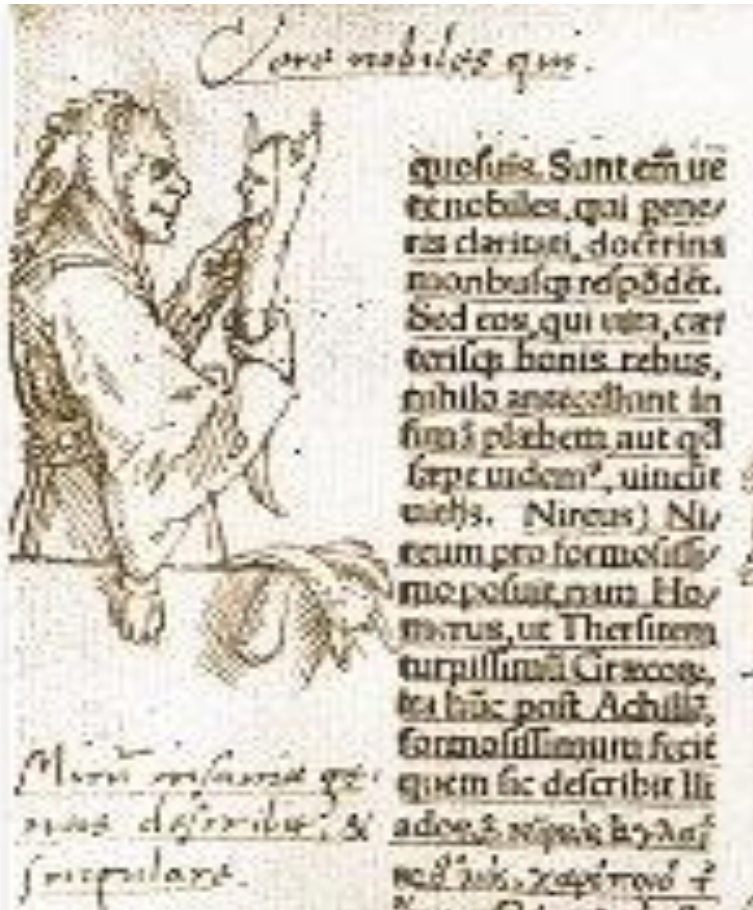 Vere nobiles qui.
quosuis. Sunt em̃ ue
re nobiles, qui gene/
ris claritati, doctrina
moribusq; respõdẽt.
Sed eos, qui uita, cæ
terisq; bonis rebus,
nihilo antecellunt in
fimã plæbem aut qd̃
sæpe uidemꝰ, uincũt
uitijs. Nireus) Ni/
reum pro formosissi/
mo posuit, nam Ho/
merus, ut Thersitem
turpissimũ Græcoꝝ,
ita hũc post Achillẽ,
formosissimum fecit
quem sic describit Ili
Mirũ insaniæ ge-
nus describit, &
singulare.